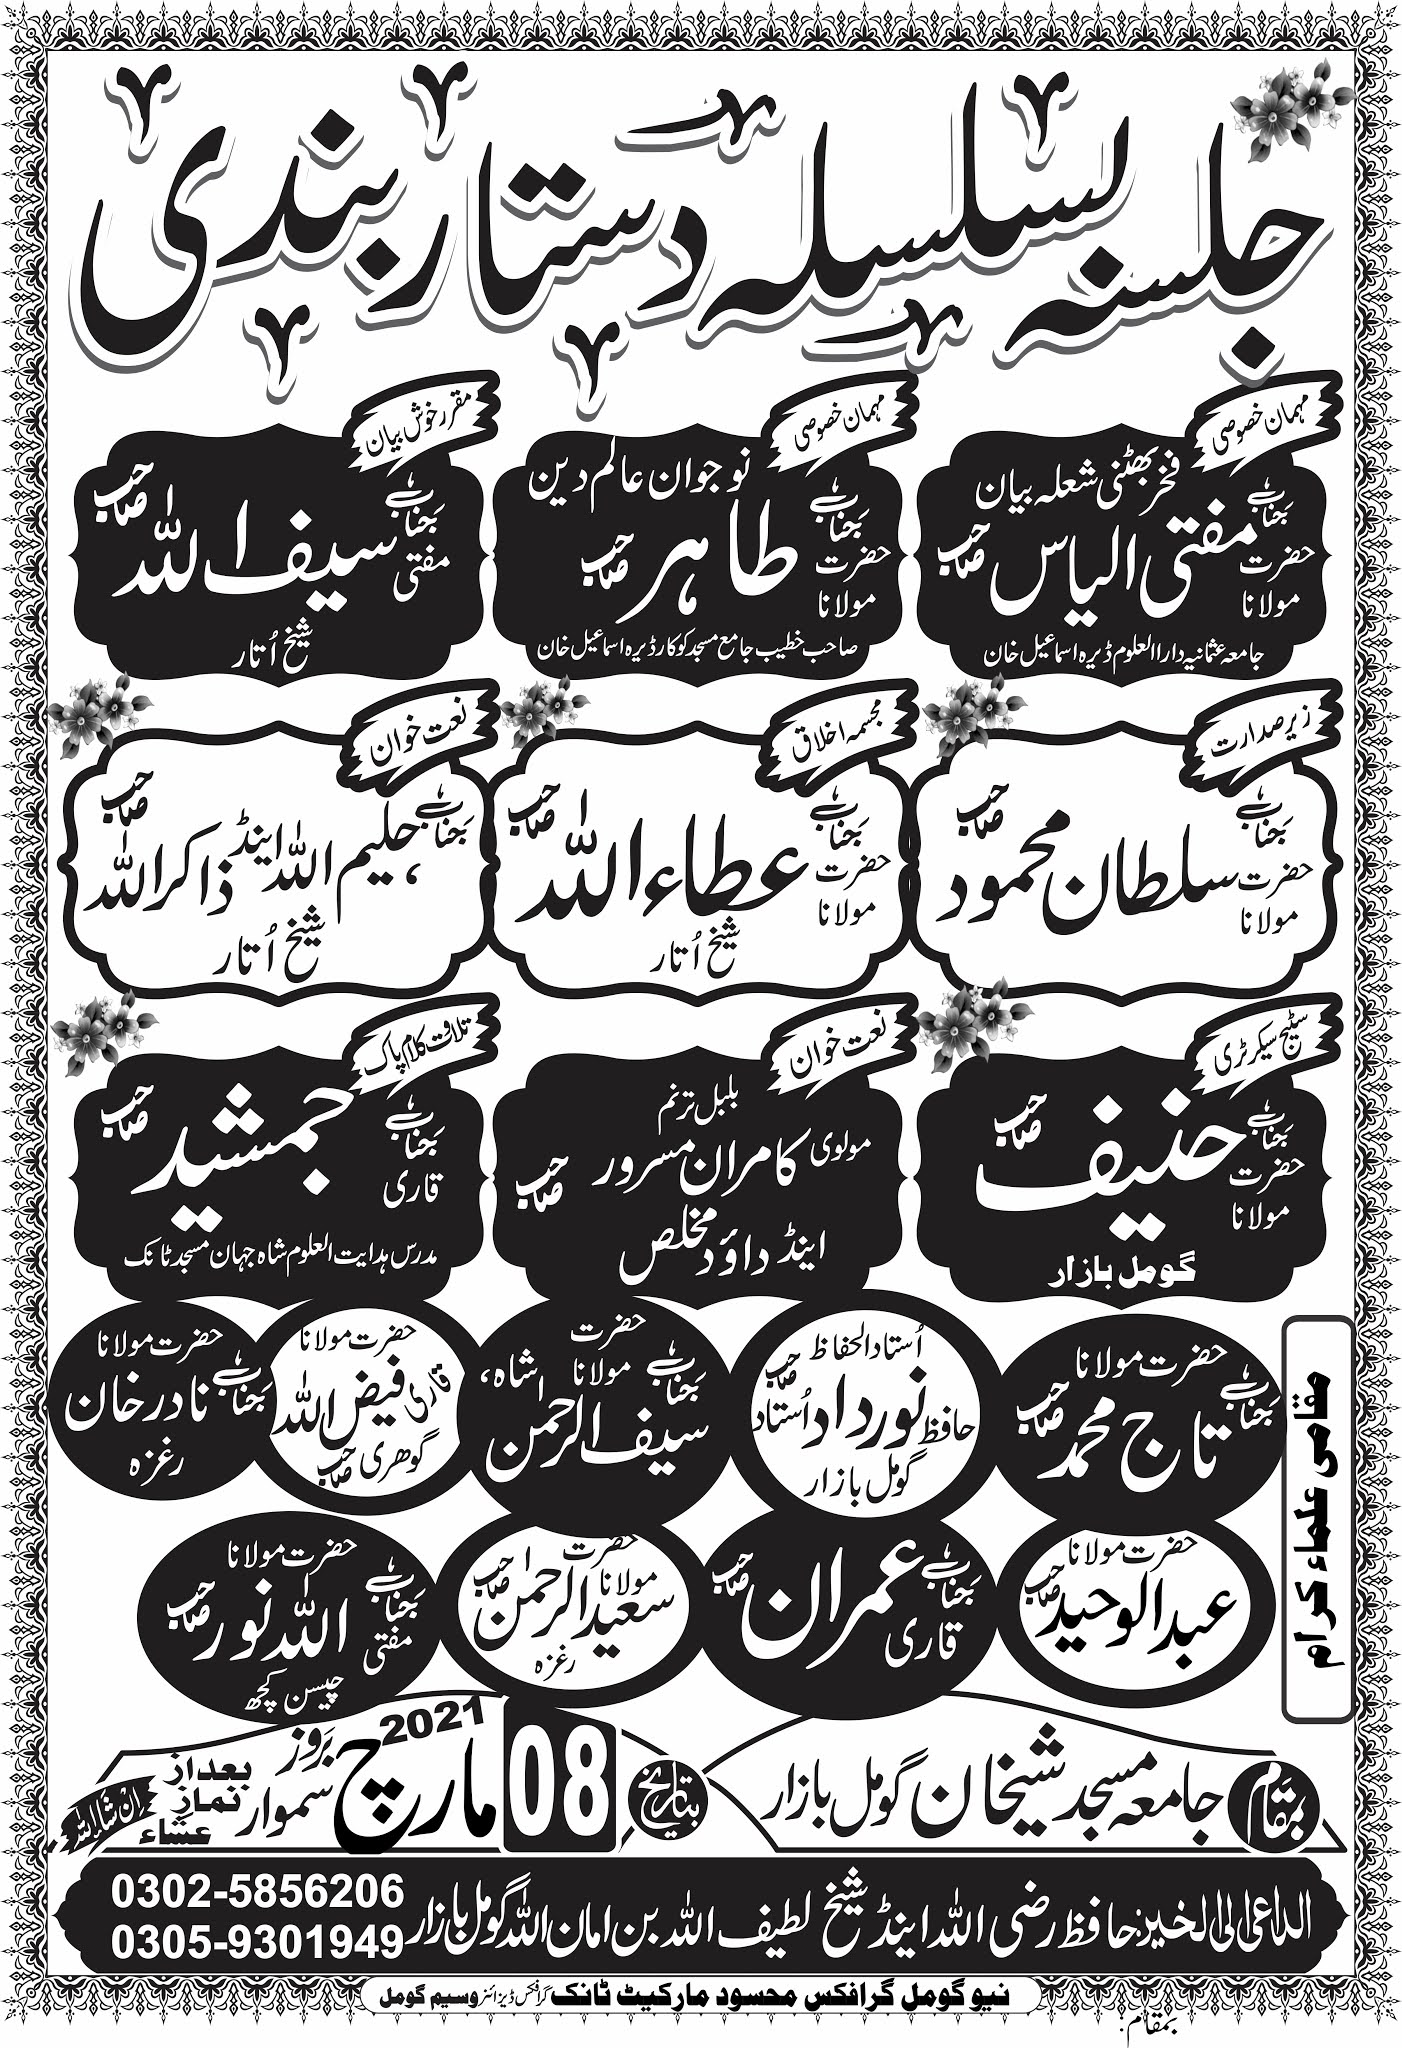 جلسہ بسلسلہ دستار بندی
مہمان خصوصی
فخر بھٹنی شعلہ بیان
جناب حضرت مولانا مفتی الیاس صاحب
جامعہ عثمانیہ دار العلوم ڈیرہ اسماعیل خان
مہمان خصوصی
نوجوان عالم دین
جناب حضرت مولانا طاہر صاحب
صاحب خطیب جامع مسجد کوکار ڈیرہ اسماعیل خان
مقرر خوش بیان
جناب مفتی سیف اللہ صاحب
شیخ اُتار
زیر صدارت
جناب حضرت مولانا سلطان محمود صاحب
مجسمہ اخلاق
جناب حضرت مولانا عطاء اللہ صاحب
شیخ اُتار
نعت خوان
جناب حلیم اللہ اینڈ ذاکر اللہ صاحب
شیخ اُتار
سٹیج سیکرٹری
جناب حضرت مولانا حنیف صاحب
گومل بازار
نعت خوان
بلبل ترنم
مولوی کامران مسرور صاحب
اینڈ داؤد مخلص
تلاقت کلام پاک
جناب قاری جمشید صاحب
مدرس ہدایت العلوم شاہ جہان مسجد ٹانک
مقامی علماء کرام
حضرت مولانا
جناب تاج محمد صاحب
اُستاد الحفاظ
حافظ نورداد اُستاد صاحب
گومل بازار
حضرت مولانا شاہ،
جناب سیف الرحمن
حضرت مولانا
قاری فیض اللہ
گوھری صاحب
حضرت مولانا
جناب نادر خان
رغزہ
حضرت مولانا
عبدالوحید صاحب
جناب قاری عمران صاحب
حضرت مولانا
سعید الرحمٰن صاحب
رغزہ
حضرت مولانا
جناب مفتی اللہ نور صاحب
چیسن کچھ
بمقام جامعہ مسجد شیخان گومل بازار
بتاریخ 08 مارچ 2021 بروز سموار بعد از نماز عشاء ان شاء اللہ
الداعی الی الخیر: حافظ رضی اللہ اینڈ شیخ لطیف اللہ بن امان اللہ گومل بازار
0302-5856206
0305-9301949
نیو گومل گرافکس محسود مارکیٹ ٹانک گرافکس ڈیزائنر وسیم گومل
بمقام: